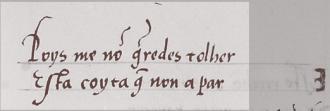 Poys me nō q̄redes tolher
Esta coyta q̄ non a par